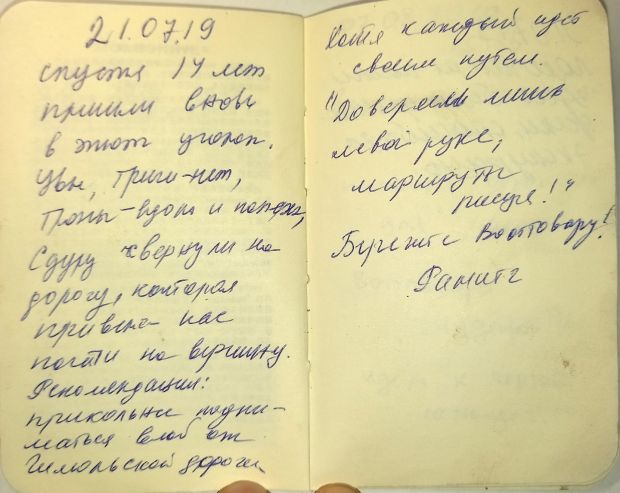 21.07.19
спустя 14 лет
пришли вновь
в этот уголок.
Увы, Триги-нет,
Тропы-вдоль и поперёк,
Сдуру свернули на
дорогу, которая
привела нас
почти на вершину.
Рекомендации:
прикольнее подни-
маться влоб от
Тимольской дороги
Хотя каждый идёт
своим путем.
"Доверяли лишь
левой руке,
маршруты
рисуя!"
Берегите Воттовару!